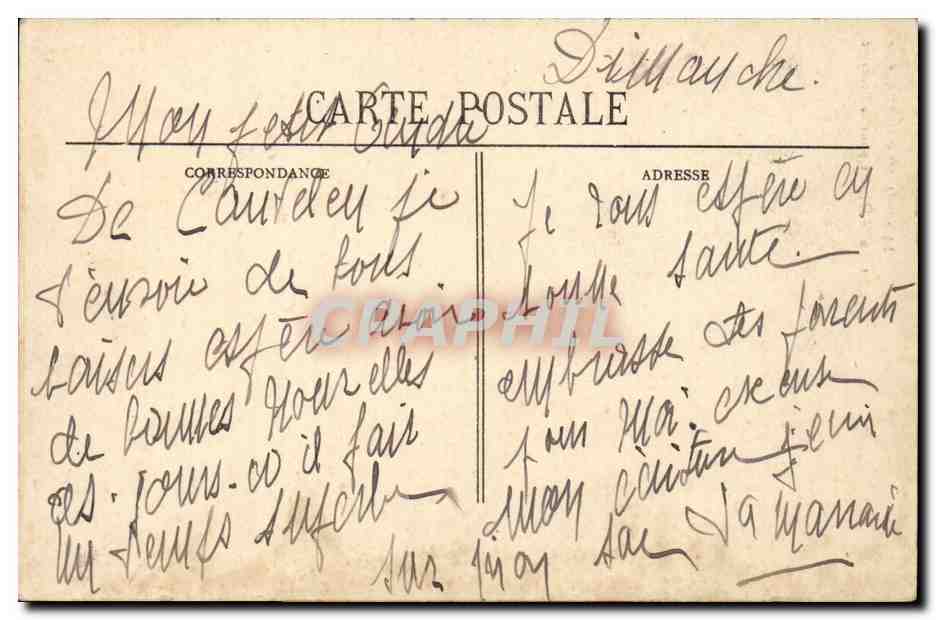 Dimanche.
CARTE POSTALE
Mon petit
CORRESPONDANCE
De je
t'envoie de bons
baisers espère avoir
de bonnes nouvelles
ces-jours-ci il fait
un temps superbe
ADRESSE
Je vous espère en
bonne santé.
embrasse tes parents
pour moi. excuse
mon écriture j'écris
sur mon sac Ta marraine
CPAPHIL